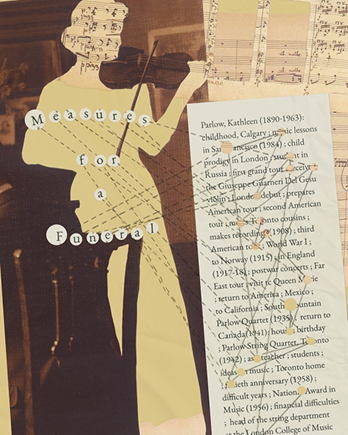 Measures
for
a
Funeral
Parlow, Kathleen (1890-1963):
childhood, Calgary ; music lessons
in San Francisco (1984) ; child
prodigy in London ; in
Russia ; first grand tour ; receives
the Giuseppe Guarneri Del Gesu
violin ; London debut ; prepares
American tour ; second American
tour ; Toronto cousins ;
makes recordings (1908) ; third
American tour ; World War I ;
to Norway (1915) ; in England
(1917-18) ; postwar concerts ; Far
East tour ; visit to Queen Marie
; return to America ; Mexico ;
to California ; South Mountain
Parlow Quartet ; return to
Canada (1941) ; birthday
; Parlow String Quartet, Toronto
(1942) ; as teacher ; students ;
ideas on music ; Toronto home
; anniversary (1958) ;
difficult years ; National Award in
Music (1956) ; financial difficulties
; head of the string department
at the London College of Music